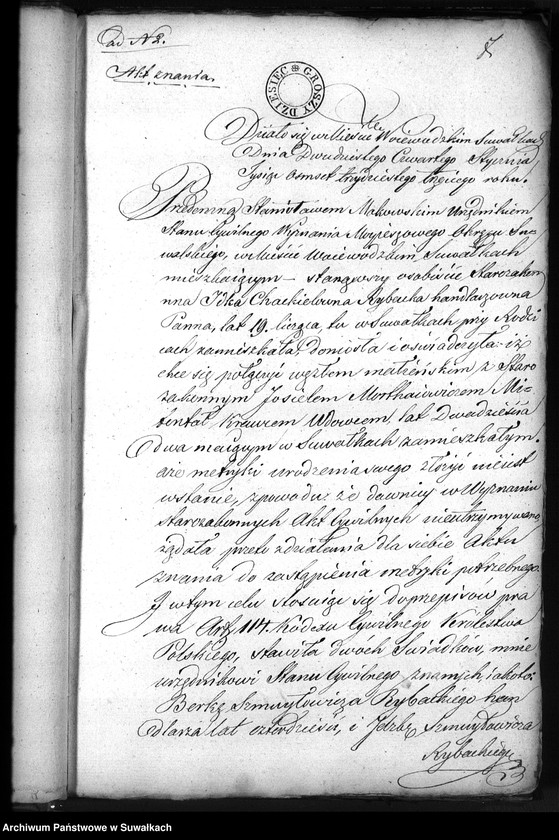 ad N 2.
7
Akt znania.
DZIESIEC GROSZY
Działo się w Mieście Woiewódzkim Suwałkach
Dnia Dwudziestego Czwartego Stycznia
Tysiąc Osmset trzydziestego trzeciego roku.
Przedemną Stanisławem Makowskim Urzędnikiem
Stanu Cywilnego Wyznania Moyżeszowego Okręgu Su-
walskiego, w Mieście Woiewódzkim Suwałkach
mieszkaiącym – stanąwszy osobiście Starozakon-
nna Itka Chackielowna Rybacka handlarzowna
Panna, lat 19. licząca, tu w Suwałkach przy Rodzi-
cach zamieszkała, doniosła i oświadczyła: iż
chce się połączyć węzłem małżeńskim z Staro
zakonnym Josielem Morthaiewiczem Mi-
tental Krawcem Wdowcem, lat Dwadzieścia
dwa maiącym w Suwałkach zamieszkałym.
a że metryki urodzenia swego złożyć nie iest
wstanie, zpowodu: że dawniey w Wyznaniu
starozakonnych Akt Cywilnych nieutrzymywano,
żądała przeto zdziałania dla siebie Aktu
znania do zastąpienia metryki potrzebnego.
I w tym celu stosuiąc się do przepisow pra
wa Art. 114. Kodexu Cywilnego Królestwa
Polskiego, stawiła dwóch Swiadków, mnie
urzędnikowi Stanu Cywilnego znanych, iakoto:
Berkę Szmuyłowicza Rybackiego han
dlarza lat czterdzieści, i Szmuyłowicza
Rybackiego
Archiwum Państwowe w Suwałkach